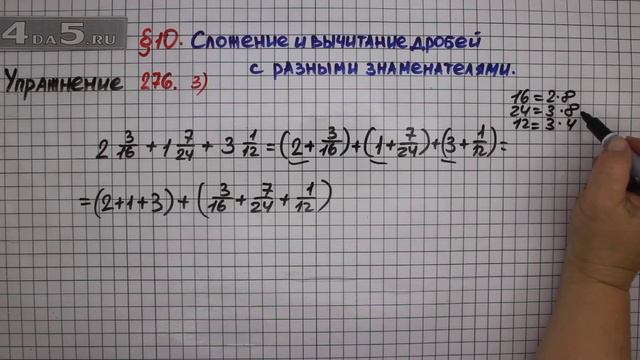 4DA5.RU
§10. Сложение и вычитание дробей
с разными знаменателями.
Упражнение 276. 3)
16 = 2·8
24 = 3·8
12 = 3·4
2 3/16 + 1 7/24 + 3 1/12 = (2 + 3/16) + (1 + 7/24) + (3 + 1/12) =
= (2+1+3) + (3/16 + 7/24 + 1/12)